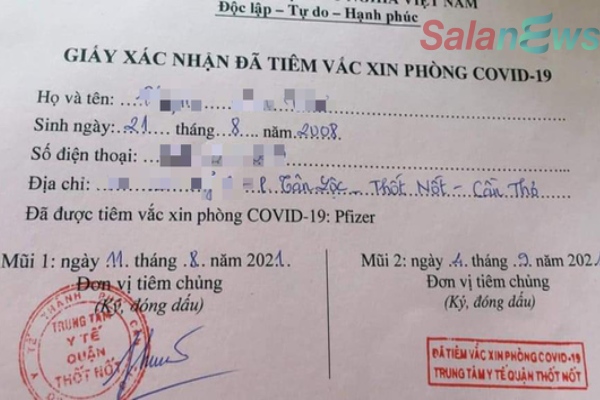 VIỆT NAM
Độc lập – Tự do – Hạnh phúc
SalaNews
GIẤY XÁC NHẬN ĐÃ TIÊM VẮC XIN PHÒNG COVID-19
Họ và tên:
Sinh ngày: 21 tháng 8 năm 2008.
Số điện thoại:
Địa chỉ: P. Tân Lộc – Thốt Nốt – Cần Thơ
Đã được tiêm vắc xin phòng COVID-19: Pfizer
Mũi 1: ngày 11 tháng 8 năm 2021. Mũi 2: ngày 4 tháng 9 năm 2021
Đơn vị tiêm chủng Đơn vị tiêm chủng
(Ký, đóng dấu) (Ký, đóng dấu)
Y TẾ THÀNH PHỐ
TRUNG TÂM
Y TẾ
QUẬN
THỐT NỐT
ĐÃ TIÊM VẮC XIN PHÒNG COVID-19
TRUNG TÂM Y TẾ QUẬN THỐT NỐT